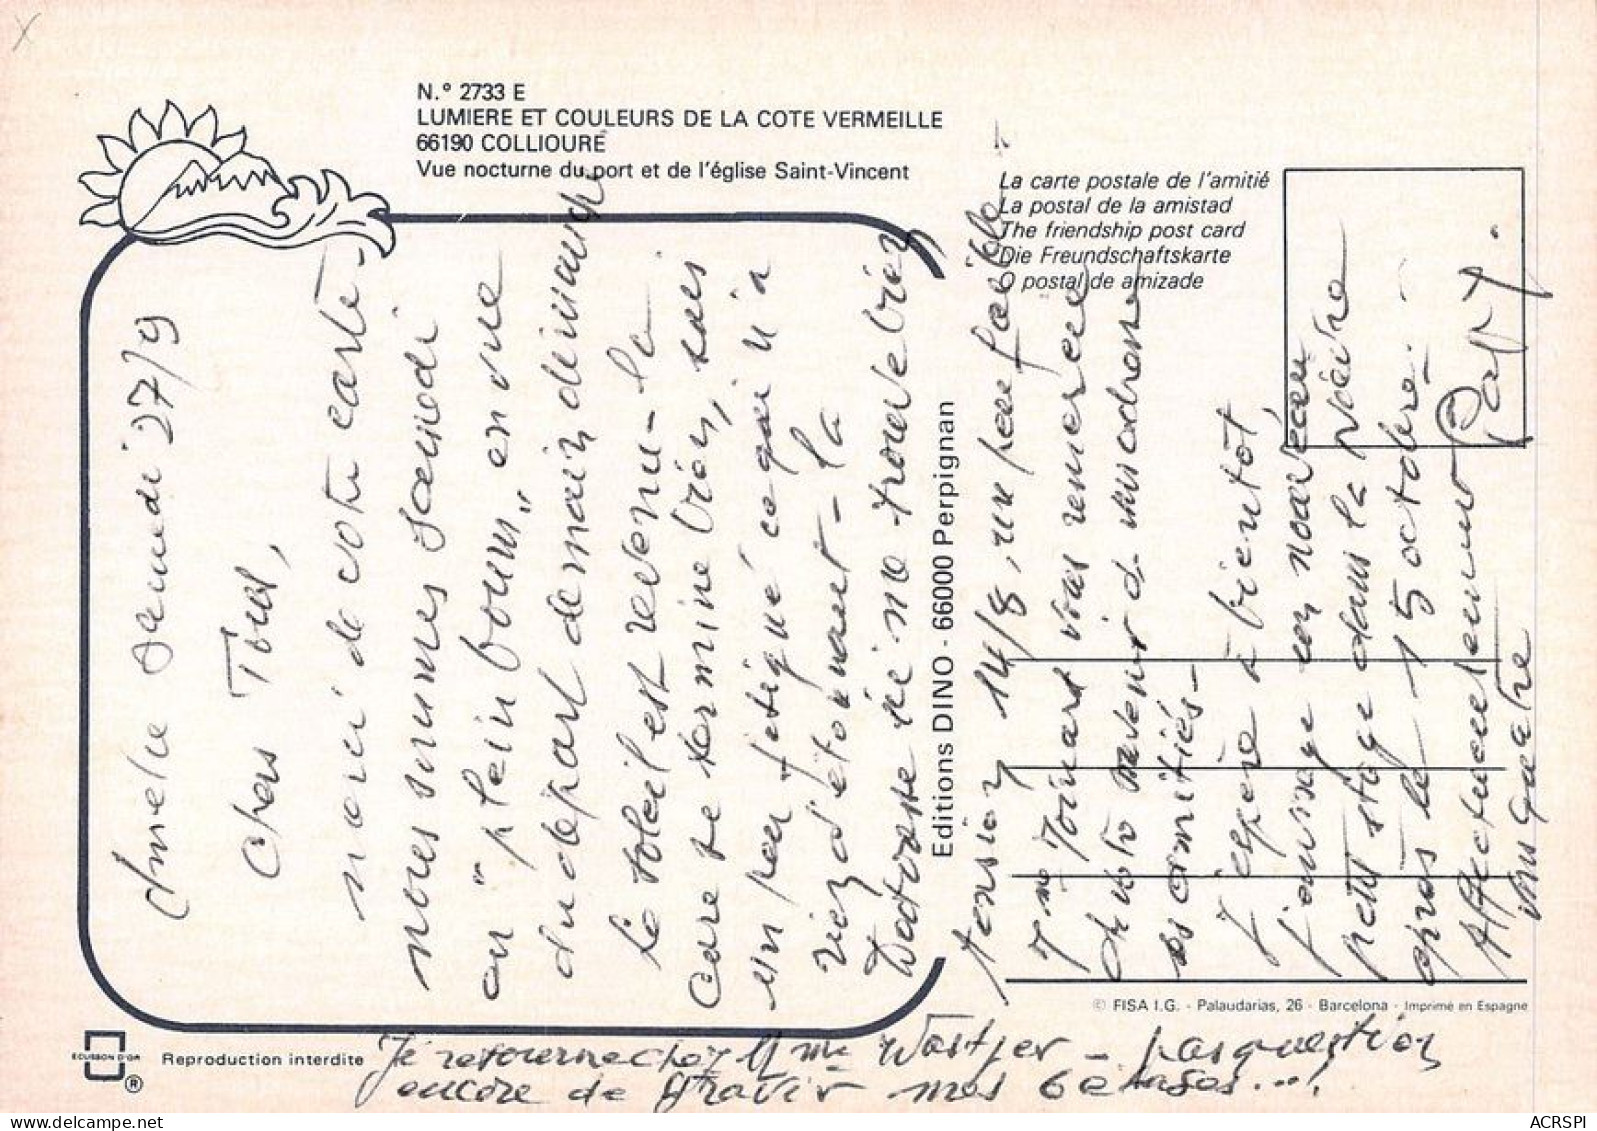 N.° 2733 E
LUMIERE ET COULEURS DE LA COTE VERMEILLE
66190 COLLIOURE
Vue nocturne du port et de l'église Saint-Vincent
La carte postale de l'amitié
La postal de la amistad
The friendship post card
Die Freundschaftskarte
O postal de amizade
Samedi 27/9
Chers Tous,
merci de votre carte -
nous sommes samedi
en "plein boum" en vue
du départ demain dimanche
Le soleil est revenu - la
cure se termine bien, suis
un peu fatigué ce qui n'a
rien d'étonnant - la
ne me trouve bien
tension 14/8, un peu faible
Mme vous remercie
de votre
ses amitiés -
J'espère à bientôt,
j'envisage un nouveau
petit stage dans la Nièvre
après le 15 octobre. -
Affectueusement
Papy.
Editions DINO - 66000 Perpignan
© FISA I.G. - Palaudarias, 26 - Barcelona - Imprimé en Espagne
ECUSSON D'OR
®
Reproduction interdite
Je retourne chez Mme - pas question
encore de gravir mes 6 étages...!
ACRSPI